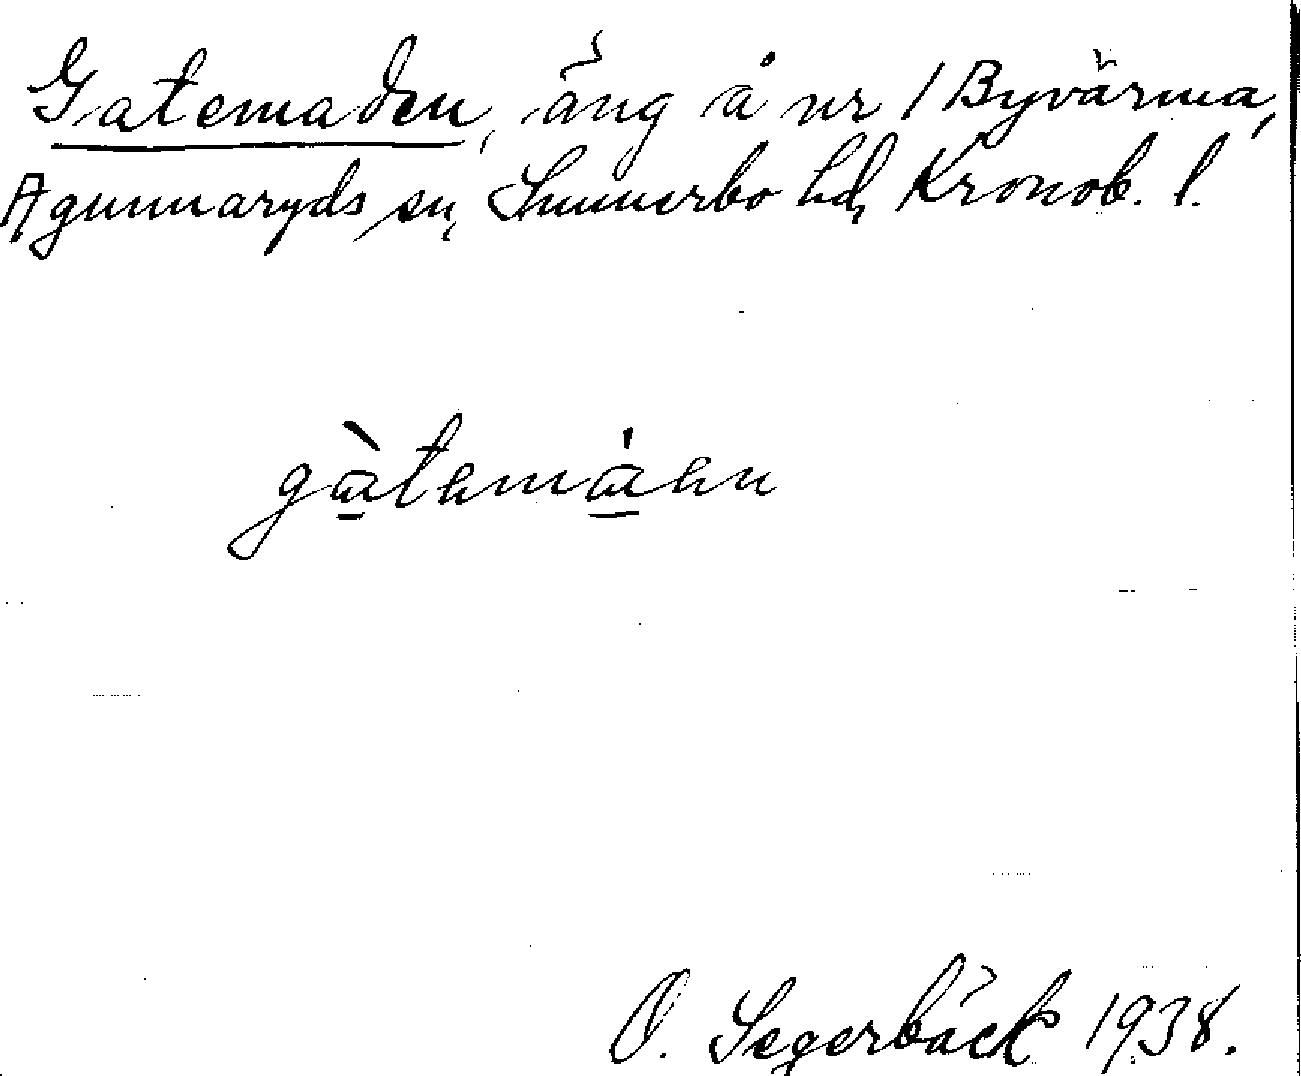 Gatemaden, äng å nr 1 Byvärma,
Agunnaryds sn, Sunnerbo hd, Kronob. l.
gàtemáen
O. Segerbäck 1938.